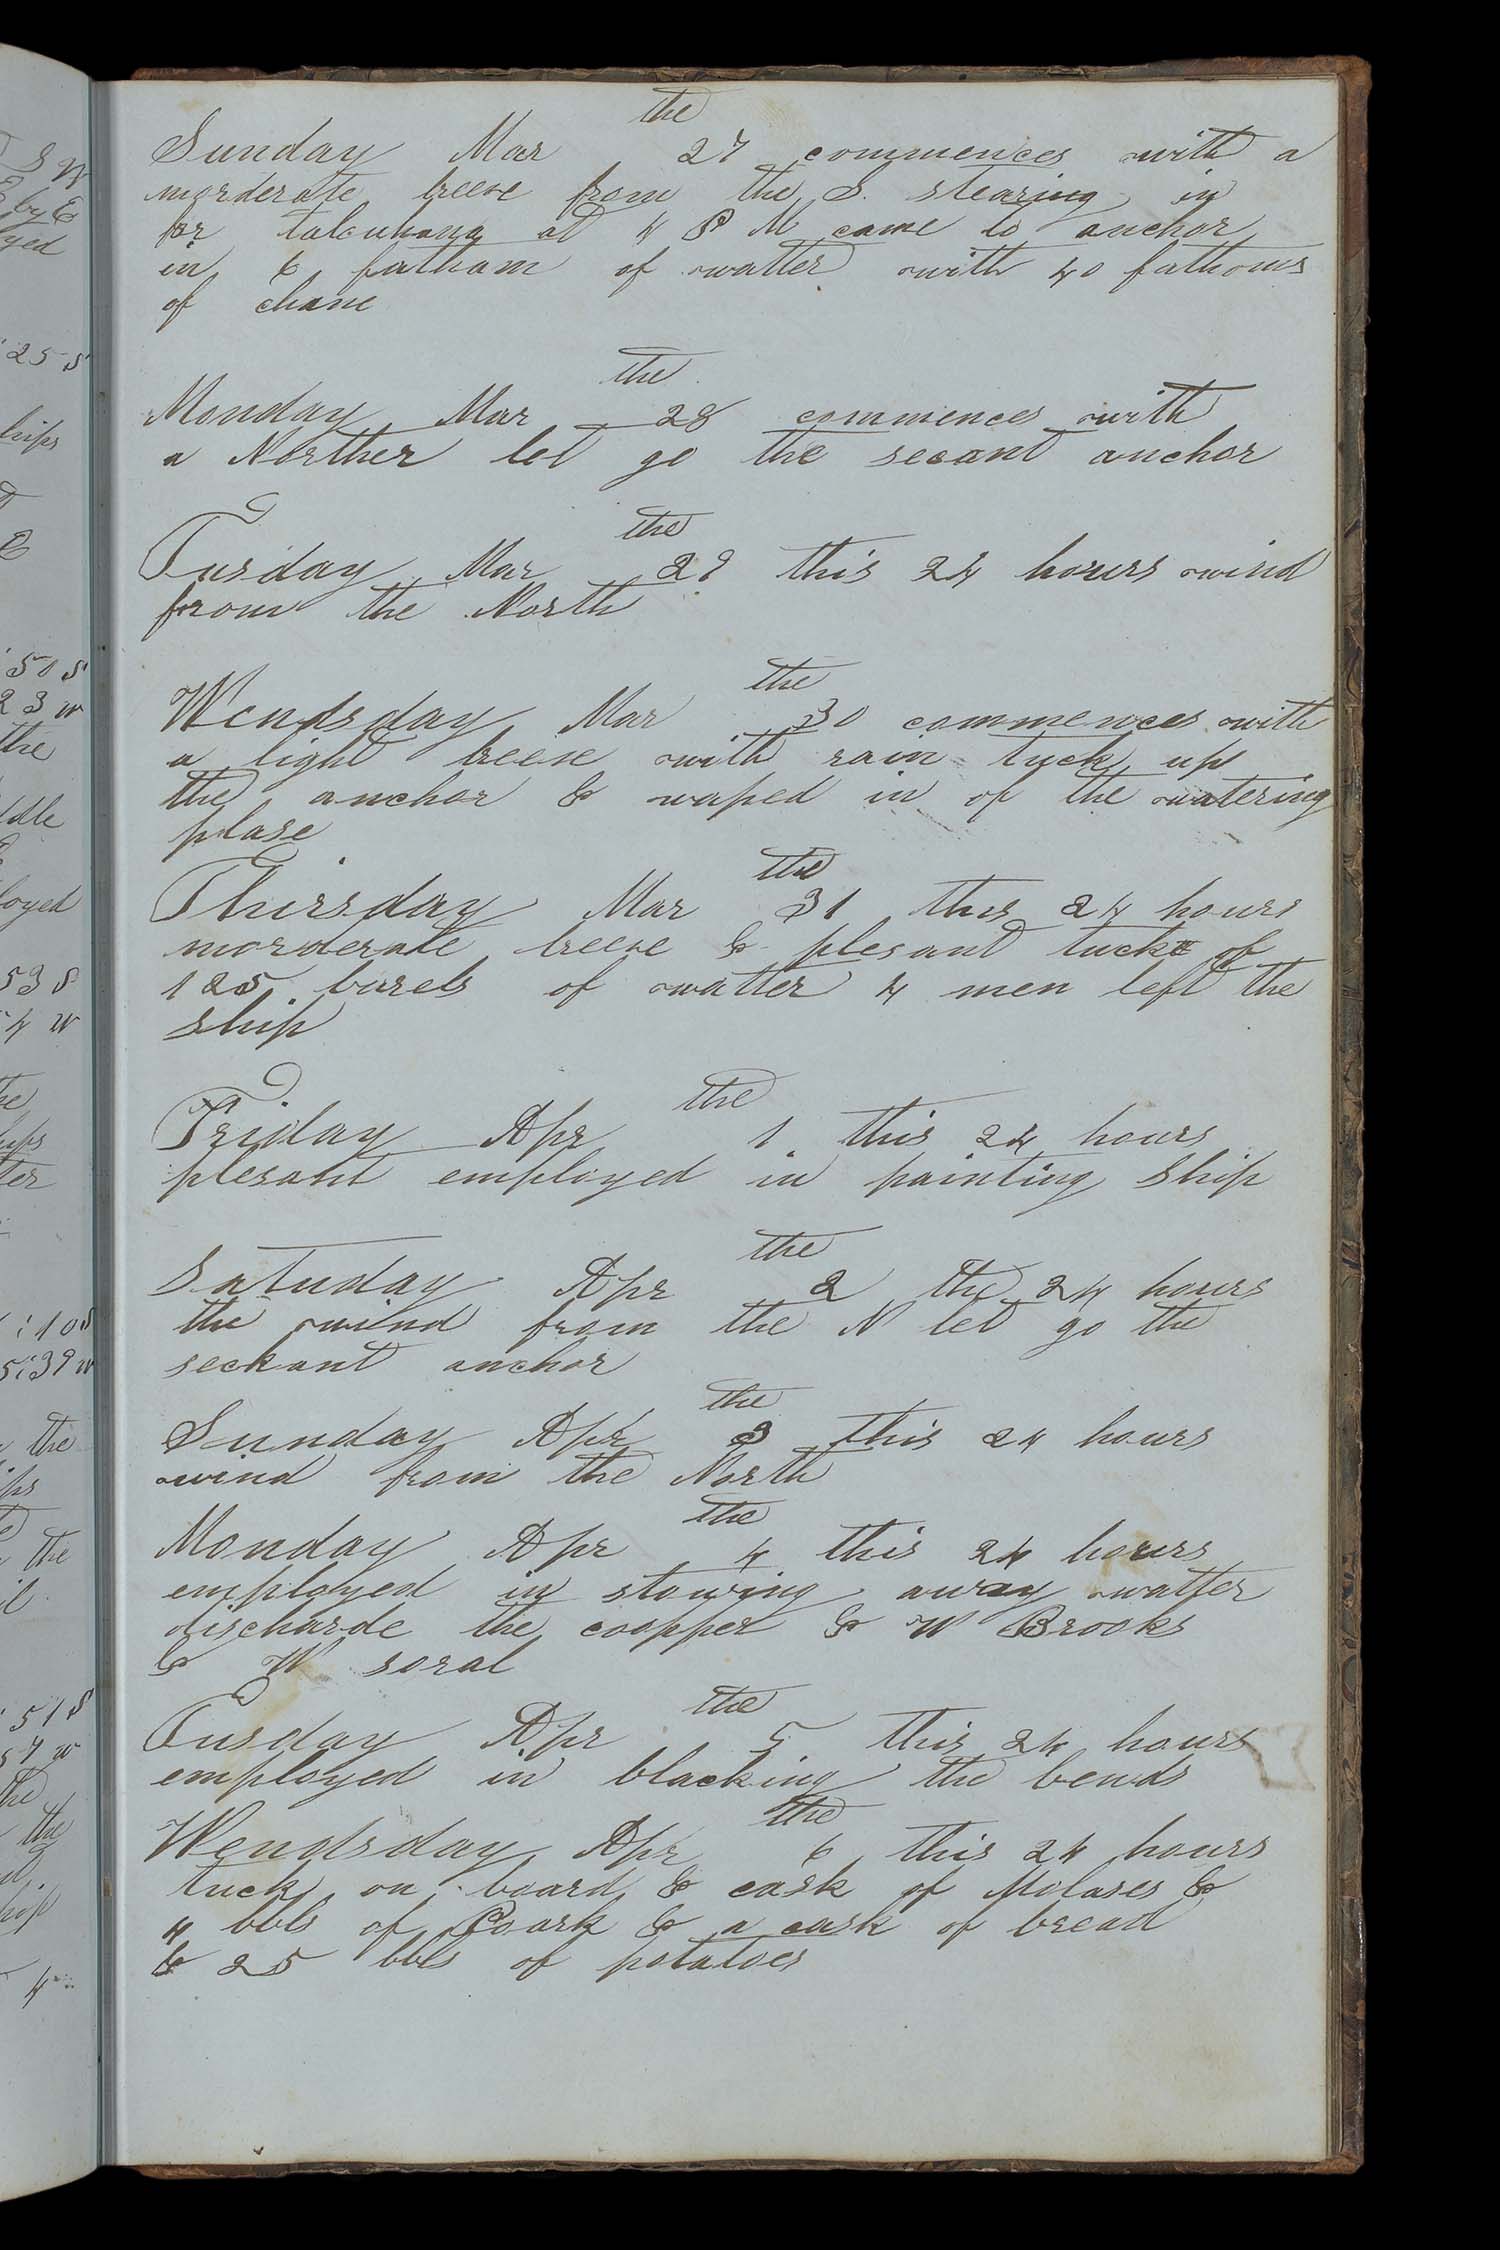 S W
E by E
yed
25 S
ships
50 S
23 W
the
ddle
loyed
53 S
4 W
the
10 S
39 W
the
the
51 S
57 W
the
the
the
Sunday Mar 27 commences with a
morderate breeze from the S. stearing in
for talcuhana at 4 P M came to anchor
in 6 fatham of watter with 40 fathoms
of chane
the
Monday Mar 28 commences with
a Norther let go the secant anchor
the
Tusday Mar 29 this 24 hours wind
from the North
the
Wendsday Mar 30 commences with
a light breeze with rain tuck up
the anchor & waped in of the watering
plase
the
Thirsday Mar 31 this 24 hours
morderate breeze & plesant tuck of
125 barels of watter 4 men left the
ship
the
Friday Apr 1 this 24 hours
plesant employed in painting ship
the
Satuday Apr 2 the 24 hours
the wind from the N let go the
seckant anchor
the
Sunday Apr 3 this 24 hours
wind from the North
the
Monday Apr 4 this 24 hours
employed in stowing away watter
discharde the coopper & W Brooks
& W soral
the
Tusday Apr 5 this 24 hours
employed in blacking the bends
the
Wendsday Apr 6 this 24 hours
tuck on board & cask of Molases &
4 bbls of Poark & a cask of bread
& 25 bbls of potatoes